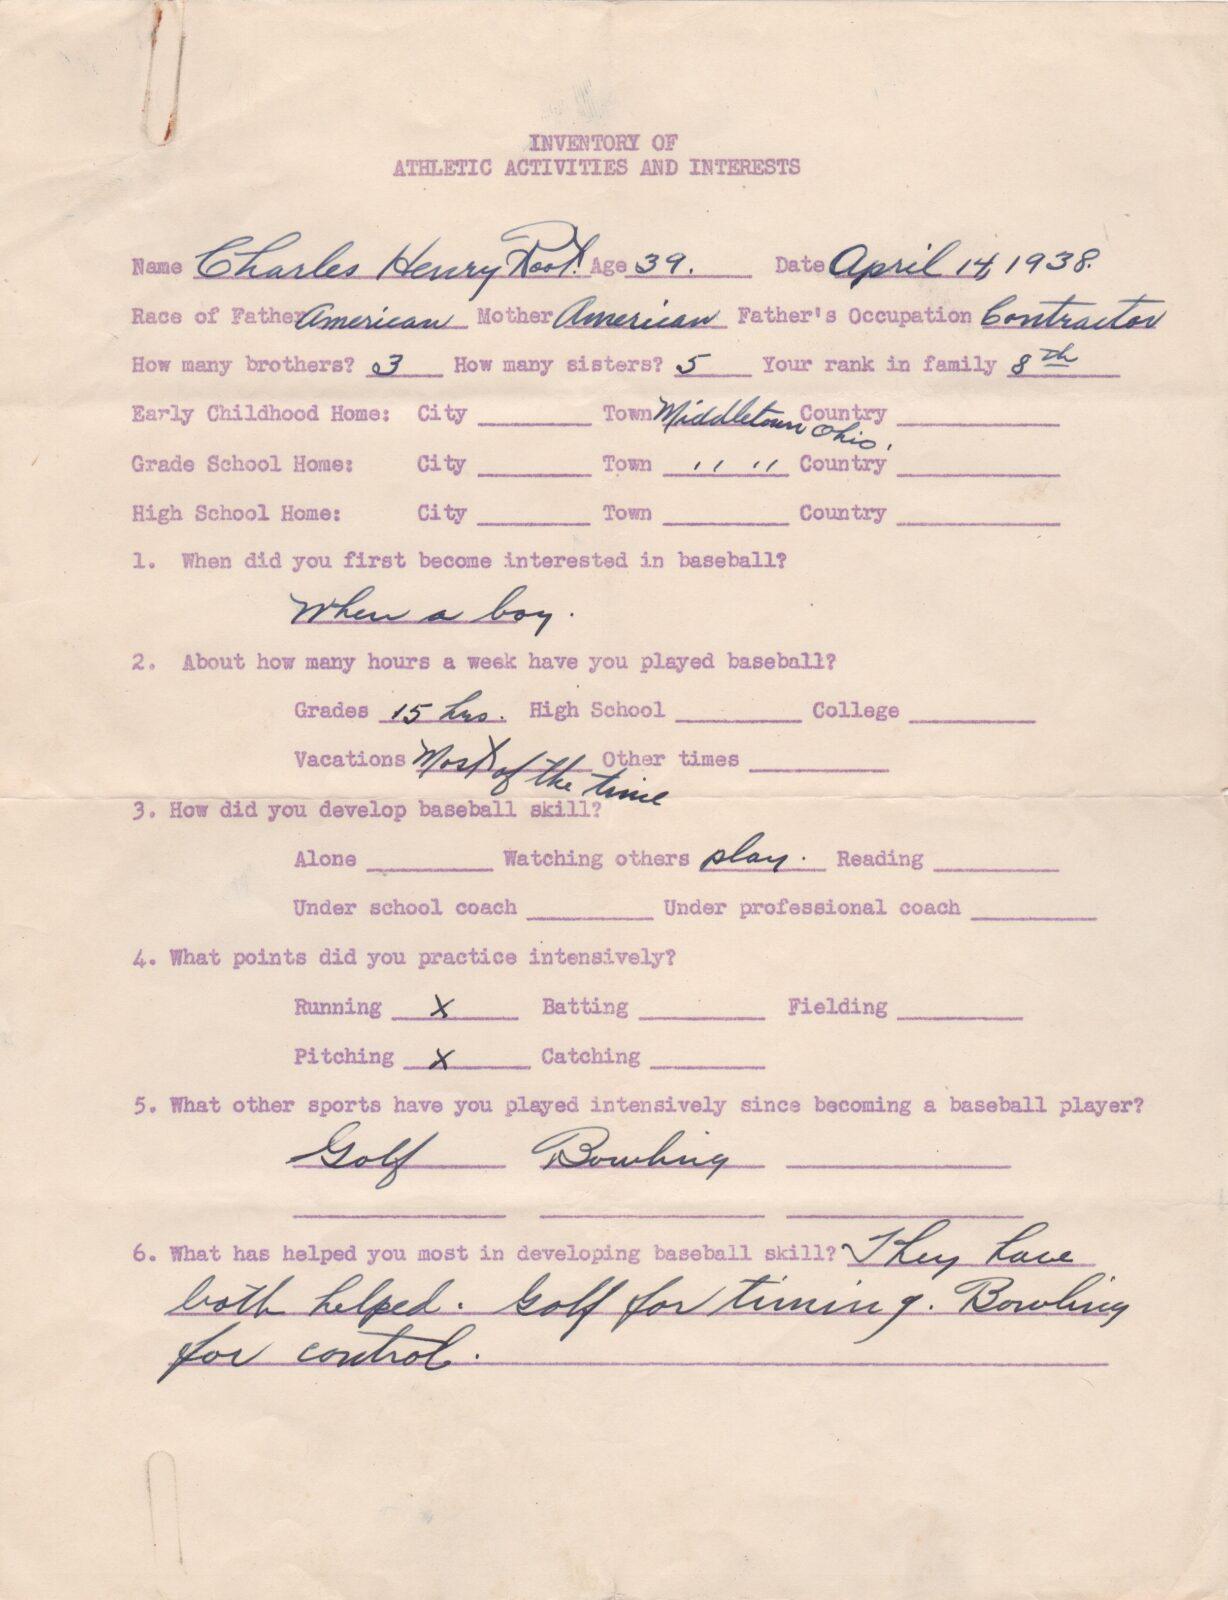 INVENTORY OF
ATHLETIC ACTIVITIES AND INTERESTS
Name Charles Henry Root. Age 39. Date April 14, 1938.
Race of Father American Mother American Father's Occupation Contractor
How many brothers? 3 How many sisters? 5 Your rank in family 8th
Early Childhood Home: City ______ Town Middletown Ohio. Country ______
Grade School Home: City ______ Town " " Country ______
High School Home: City ______ Town ______ Country ______
1. When did you first become interested in baseball?
When a boy.
2. About how many hours a week have you played baseball?
Grades 15 hrs. High School ______ College ______
Vacations Most of the time Other times ______
3. How did you develop baseball skill?
Alone ______ Watching others play. Reading ______
Under school coach ______ Under professional coach ______
4. What points did you practice intensively?
Running X Batting ______ Fielding ______
Pitching X Catching ______
5. What other sports have you played intensively since becoming a baseball player?
Golf Bowling ______
6. What has helped you most in developing baseball skill? They have
both helped. Golf for timing. Bowling
for control.